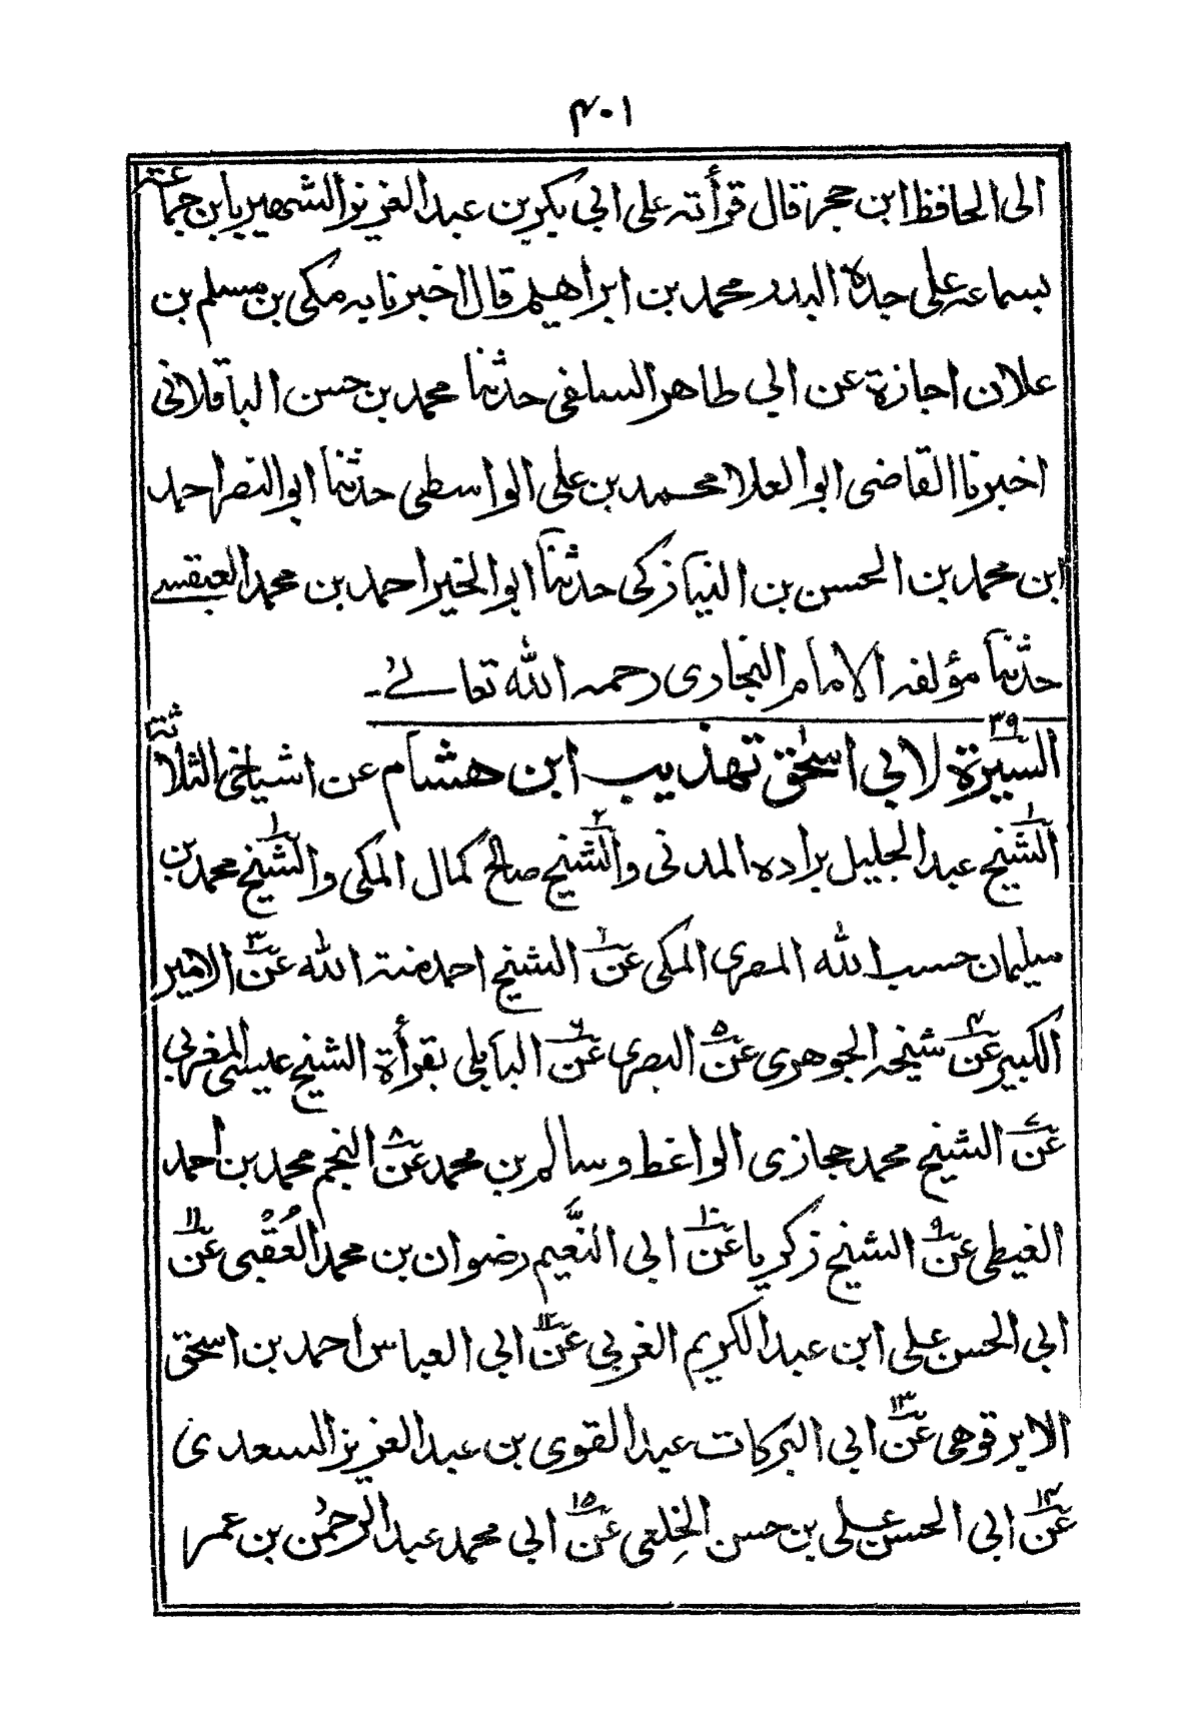 ٤٠١
الى الحافظ ابن حجر قال قرأته على ابي بكر بن عبد العزيز الشهير بابن جماعة
بسماعه على جده البدر محمد بن ابراهيم قال اخبرنا به مكى بن مسلم بن
علان اجازة عن ابي طاهر السلفى حدثنا محمد بن حسن الباقلانى
اخبرنا القاضى ابو العلا محمد بن على الواسطى حدثنا ابو النصر احمد
ابن محمد بن الحسن بن النيازكى حدثنا ابو الخير احمد بن محمد العبقسے
حدثنا مؤلفه الامام البخارى رحمه الله تعالےٰ۔
٣٩
السيرة لابي اسحٰق تهذيب ابن هشام عن اشياخى الثلاثة
الشيخ١ عبد الجليل براده المدنى والشيخ٢ صالح كمال المكى والشيخ١ محمد بن
سليمان حسب الله المصرى المكى عن٢ الشيخ احمد منة الله عن٣ الامير
الكبير عن٤ شيخه الجوهرى عن٥ البصرى عن٦ البابلى بقرأة الشيخ عيسى المغربي
عن٧ الشيخ محمد حجازى الواعظ وسالم بن محمد عن٨ النجم محمد بن احمد
الغيطى عن٩ الشيخ زكريا عن١٠ ابى النَّعيم رضوان بن محمد العُقْبى عن١١
ابي الحسن على ابن عبد الكريم الغربي عن١٢ ابي العباس احمد بن اسحٰق
الابرقوهى عن١٣ ابى البركات عبد القوى بن عبد العزيز السعدى
عن١٤ ابى الحسن على بن حسن الخِلعى عن١٥ ابى محمد عبد الرحمٰن بن عمر